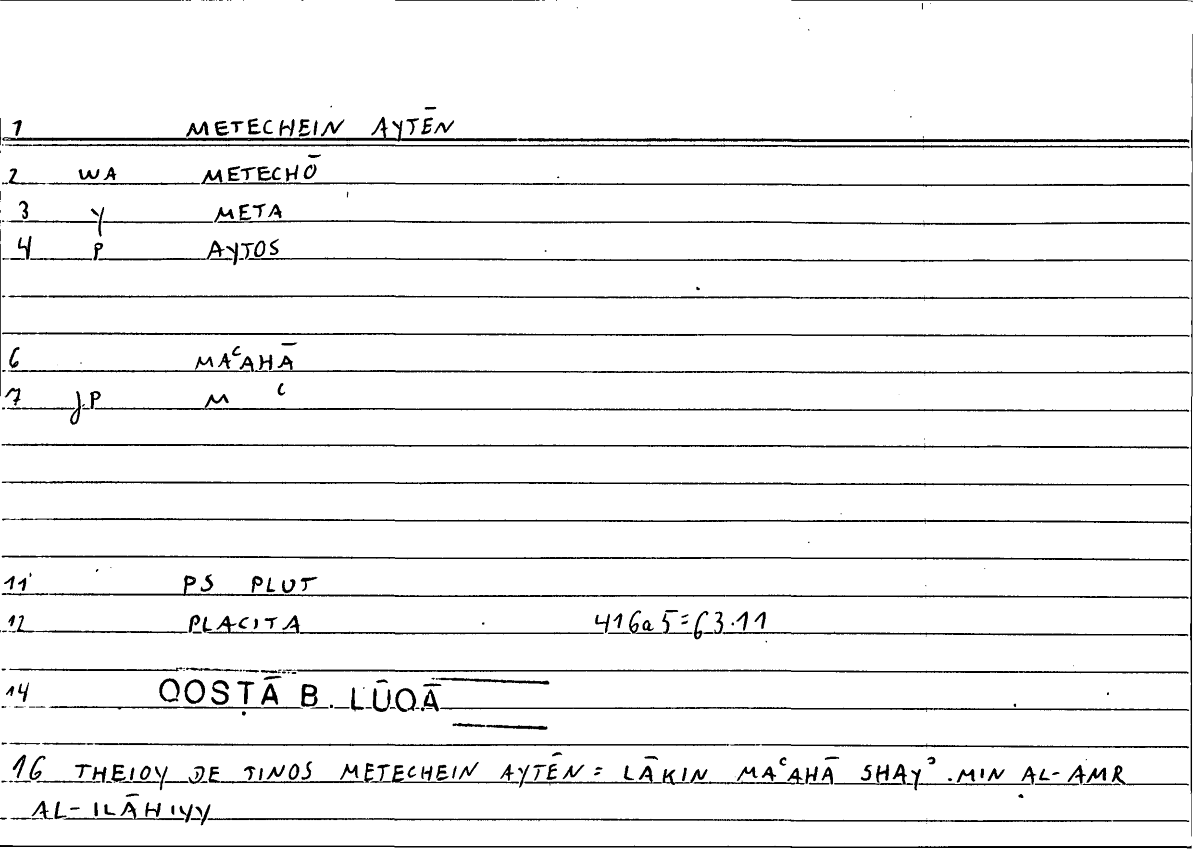 1 METECHEIN AYTĒN
2 WA METECHŌ
3 Y META
4 P AYTOS
6 MAᶜAHĀ
7 JP M ᶜ
11 PS PLUT
12 PLACITA 416a5=63.11
14 QOSṬĀ B. LŪQĀ
16 THEIOY DE TINOS METECHEIN AYTĒN = LĀKIN MAᶜAHĀ SHAYʾ MIN AL-AMR
AL-ILĀHIYY